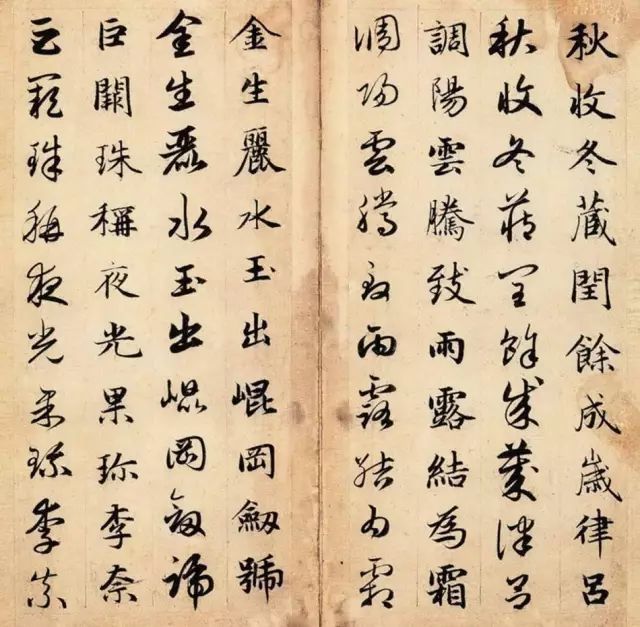 秋收冬藏閏餘成歲律呂
秋收冬藏閏餘成歲律呂
調陽雲騰致雨露結為霜
調陽雲騰致雨露結為霜
金生麗水玉出崐岡劒號
金生麗水玉出崐岡劒號
巨闕珠稱夜光果珍李奈
巨闕珠稱夜光果珍李奈